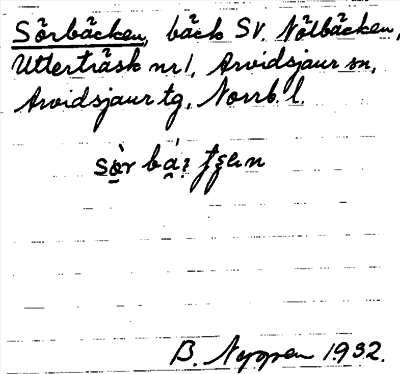 Sörbäcken, bäck SV. Nölbäcken,
Utterträsk nr 1, Arvidsjaur sn,
Arvidsjaur tg, Norrb. l.
B. Nyman 1932.